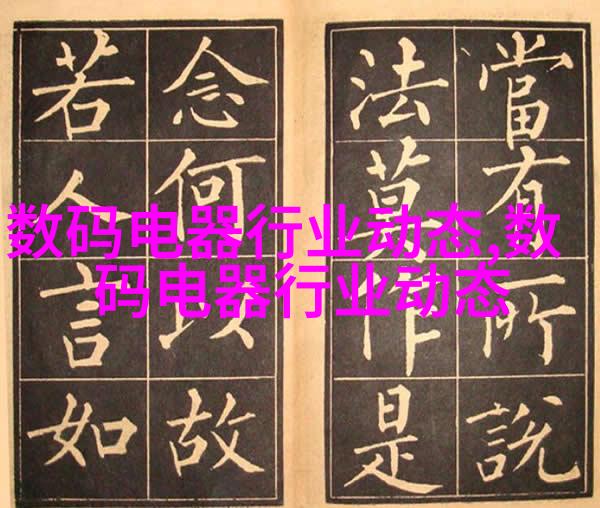 数码电器行业动态,数
码电器行业动态
當有所說
法莫作是
念何以故
若人言如